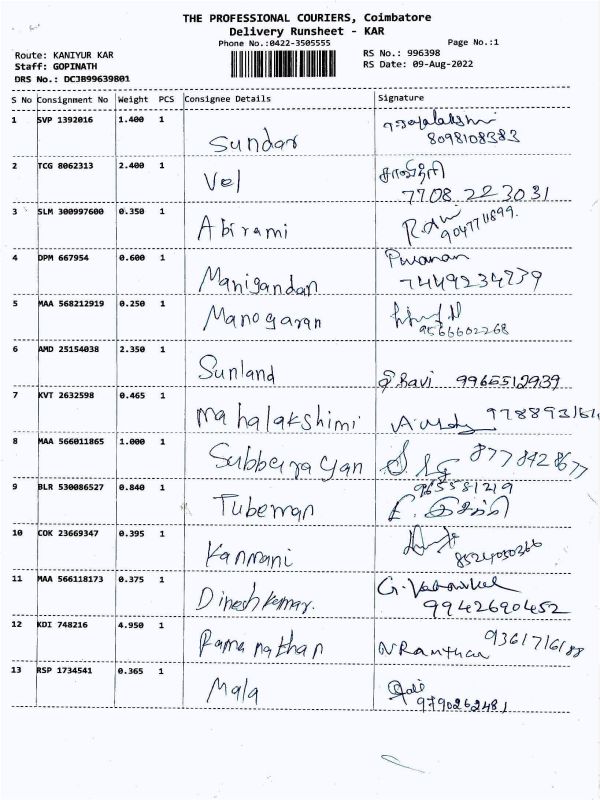 THE PROFESSIONAL COURIERS, Coimbatore
Delivery Runsheet - KAR
Phone No.:0422-3505555
Page No.:1
Route: KANIYUR KAR
RS No.: 996398
Staff: GOPINATH
RS Date: 09-Aug-2022
DRS No.: DCJB99639801
S No Consignment No Weight PCS Consignee Details Signature
1 SVP 1392016 1.400 1
Sundar
8098108383
2 TCG 8062313 2.400 1
Vel
சாவித்ரி
7708 223031
3 SLM 300997600 0.350 1
Abirami
4 DPM 667954 0.600 1
Manigandan
7449234739
5 MAA 568212919 0.250 1
Manogaran
9566602268
6 AMD 25154038 2.350 1
Sunland
Ravi 9965512939
7 KVT 2632598 0.465 1
Mahalakshimi
8 MAA 566011865 1.000 1
Subberayan
8778428677
9 BLR 530086527 0.840 1
Tubeman
965581219
10 COK 23669347 0.395 1
Kanmani
8524050366
11 MAA 566118173 0.375 1
Dineshkumar.
9942690452
12 KDI 748216 4.950 1
Ramanathan
13 RSP 1734541 0.365 1
Mala
9790262481